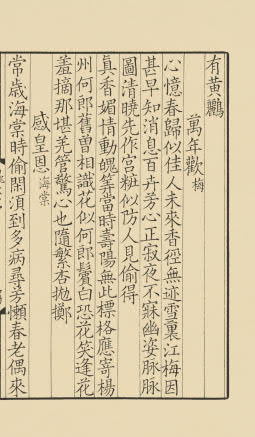 有黃鸝
萬年歡梅
心憶春歸似佳人未來香徑無迹雪裏江梅因
甚早知消息百卉芳心正寂夜不寐幽姿脈脈
圖清曉先作宮粧似防人見偷得
真香媚情動魄筭當時壽陽無此標格應寄楊
州何郎舊曽相識花似何郎鬢白恐花笑逢花
羞摘那堪羌管驚心也隨繁杏拋擲
感皇恩海棠
常歲海棠時偷閑須到多病尋芳懶春老偶來